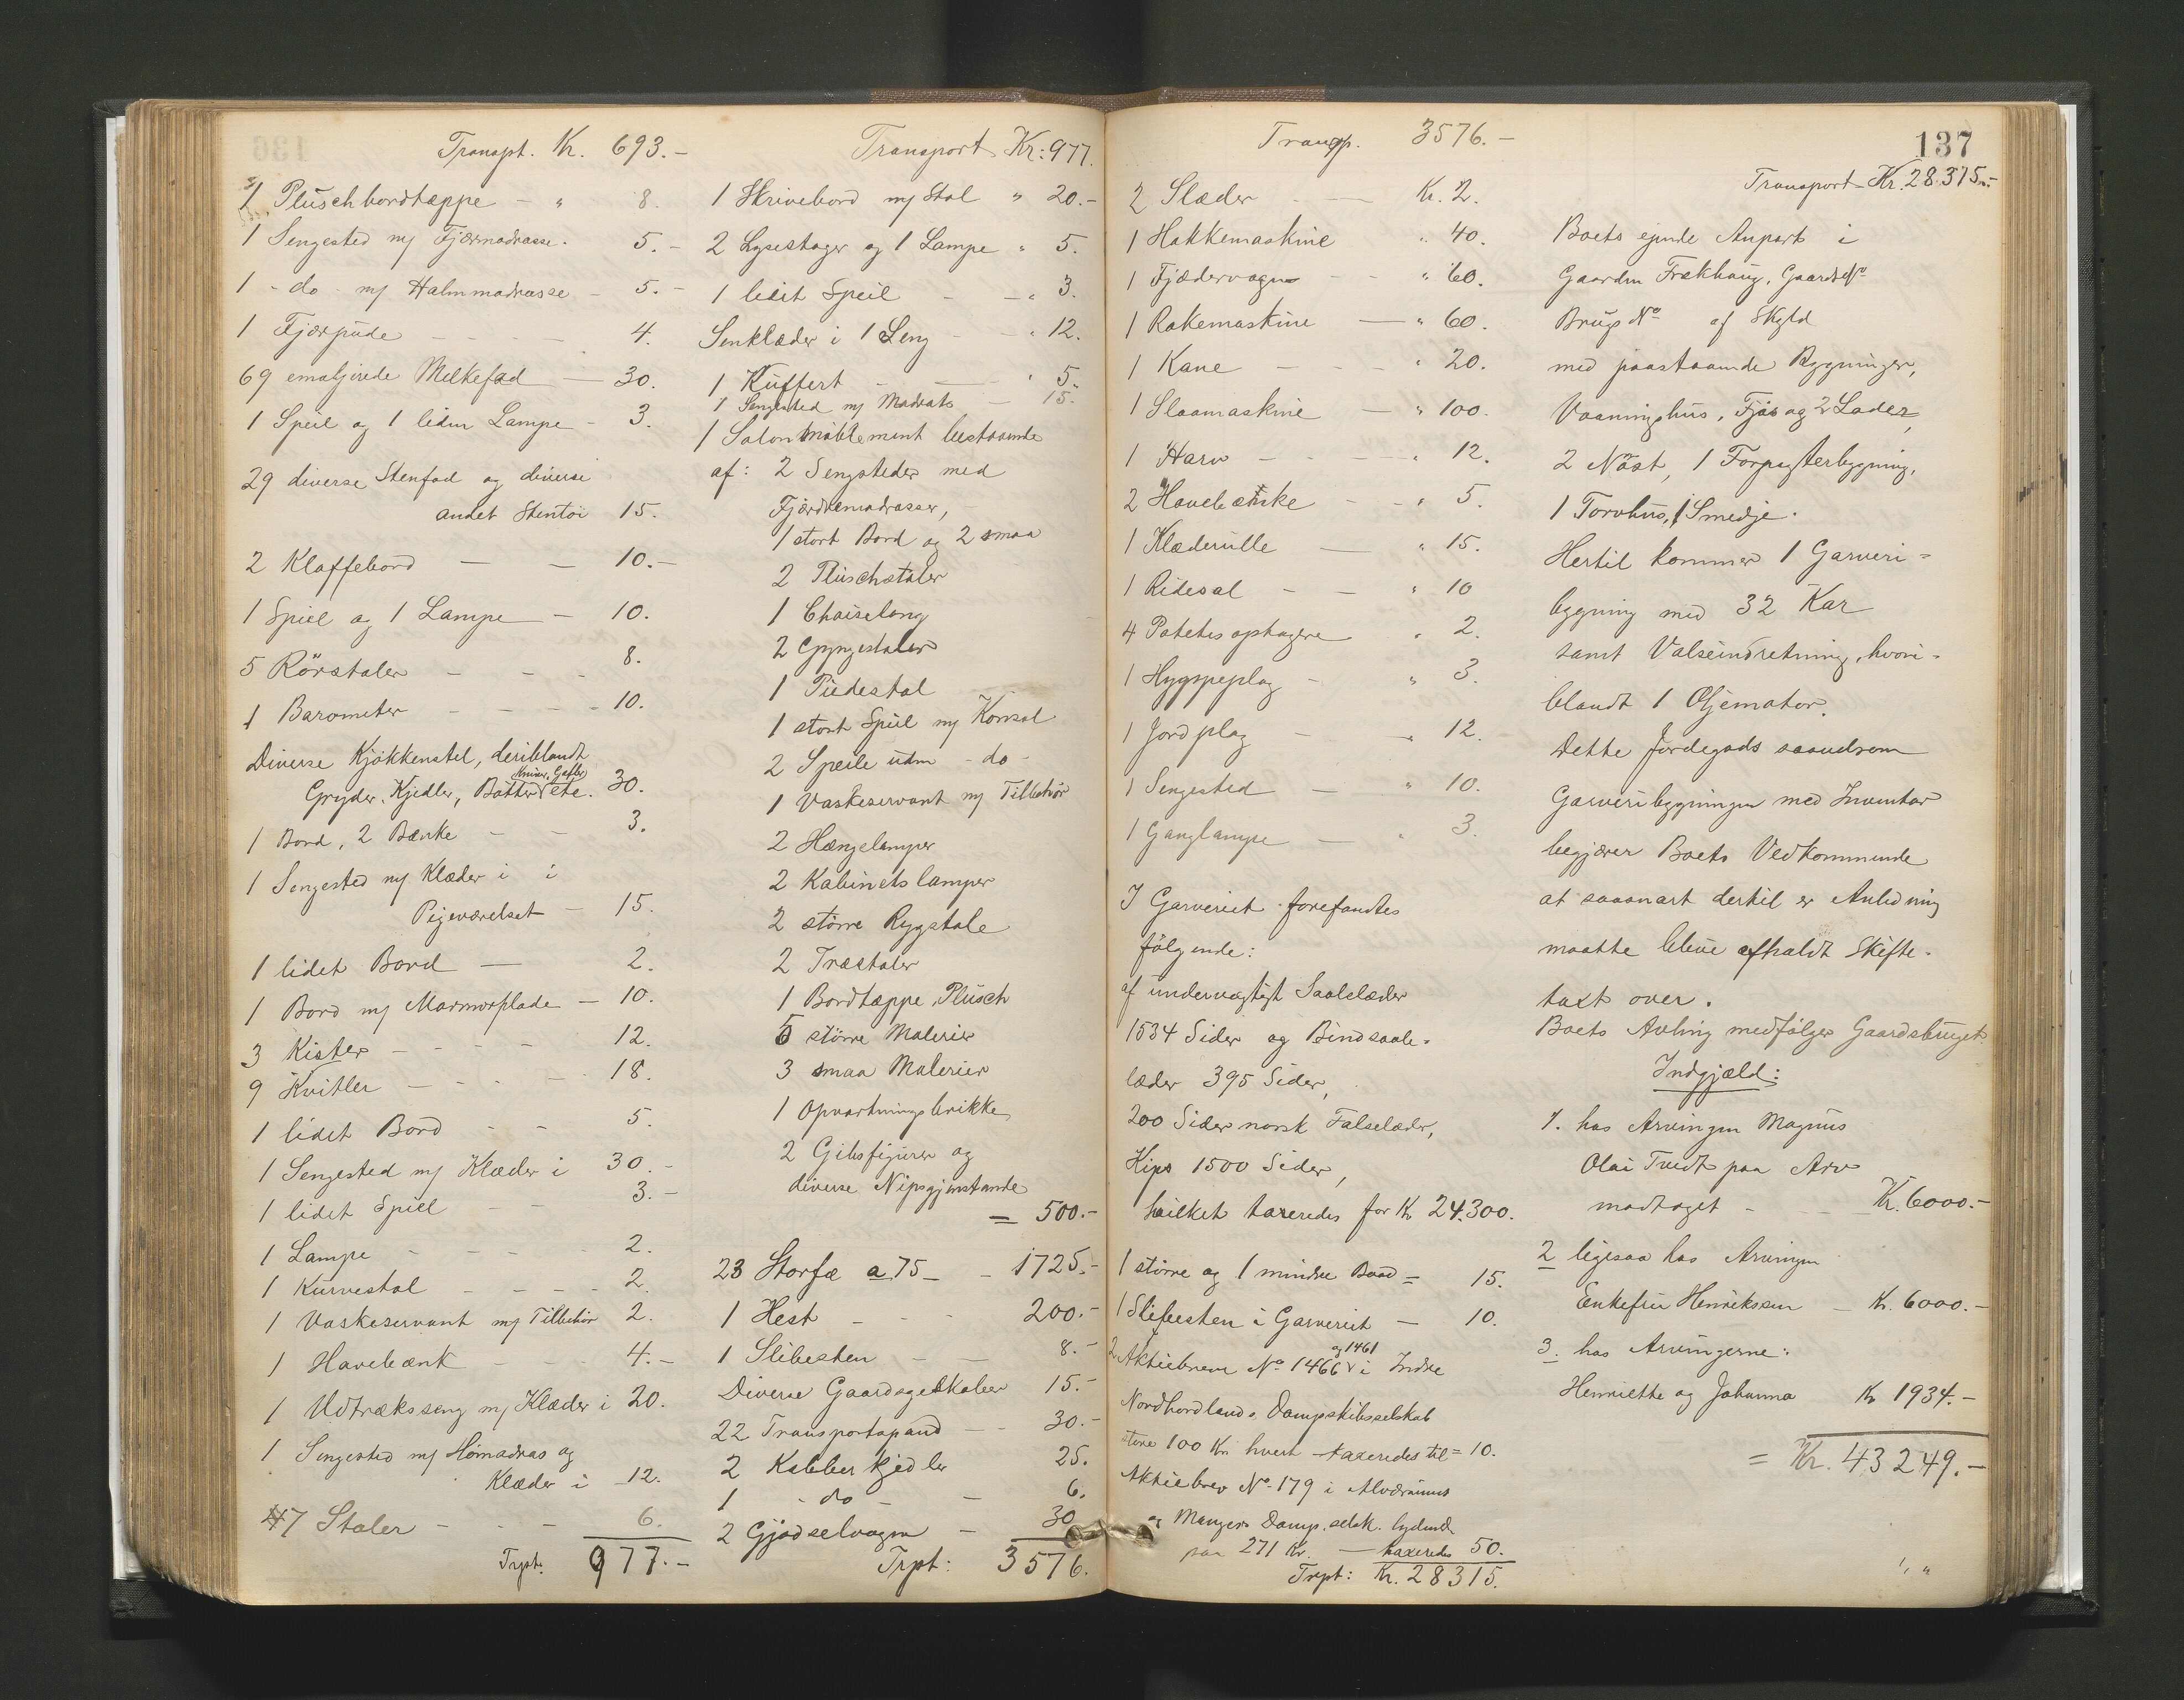 Transpt. Kr. 693.-
1 Plüschbordtæppe - " 8.
1 Sengested m/ Fjærmadrasse. 5.-
1 - do - m/ Halmmadrasse - 5.-
1 Fjærpude - - - - 4.
69 emaljerede Melkefad - 30.
1 Speil og 1 liden Lampe - 3.
29 diverse Stenfad og diverse
andet Stentøi 15.
2 Klaffebord - - 10.-
1 Speil og 1 Lampe - 10.
5 Rörstoler - - - 8.
1 Barometer - - - - 10.
Diverse Kjøkkenstel, deriblandt
Knive, Gafler
Gryder, Kjedler, Bøtter etc. 30.
1 Bord, 2 Bænke - - 3.
1 Sengested m/ Klæder i i
Pigeværelset - 15.
1 lidet Bord - 2.
1 Bord m/ Marmorplade - 10.
3 Kister - - - - 12.
9 Kvitler - - - - 18.
1 lidet Bord - - 5.
1 Sengested m/ Klæder i 30.-
1 lidet Speil - - 3.-
1 Lampe - - - - 2.
1 Kurvestol - - - - 2.
1 Vaskeservant m/ Tilbehör 2.
1 Havebænk - - - 4.-
1 Udtræksseng m/ Klæder i 20.
1 Sengested m/ Hömadras og
Klæder i 12.
7 Stoler - - - 6.
Trpt. 977.-
Transport Kr: 977.
1 Skrivebord m/ Stol " 20.-
2 Lysestager og 1 Lampe " 5.
1 lidet Speil - - " 3.
Senklæder i 1 Seng - " 12.
1 Kuffert - - " 5.-
1 Sengested m/ Madrats - 15.-
1 Salonmöblement bestaaende
af: 2 Sengesteder med
Fjædremadrasser,
1 stort Bord og 2 smaa
2 Plüschstoler
1 Chaiselong
2 Gyngestoler
1 Piedestal
1 stort Speil m/ Konsol
2 Speile uden - do -
1 Vaskeservant m/ Tilbehör
2 Hængelamper
2 Kabinetslamper
2 större Rygstole
2 Træstoler
1 Bordtæppe, Plüsch
5 större Malerier
3 smaa Malerier
1 Opvartningsbrikke
2 Gibsfigurer og
diverse Nipsgjenstande
= 500.-
23 Storfæ a 75 - - 1725.-
1 Hest - - - 200.-
1 Slibesten - - 8.-
Diverse Gaardsredskaber 15.-
22 Transportspand - - 30.-
2 Kobberkjedler 25.
1 - do - - 6.
2 Gjødselvogne - 30
Trpt: 3576.
Transp. 3576.-
2 Slæder - - Kr. 2.
1 Hakkemaskine " 40.
1 Fjædervogn - - " 60.
1 Rakemaskine - " 60.
1 Kane - - - " 20.
1 Slaamaskine - " 100.
1 Harv - - - - " 12.
2 Havebænke - - " 5.
1 Klæderulle - " 15.
1 Ridesal - - " 10
4 Potetesoptagere " 2.
1 Hyppeplog - " 3.
1 Jordplog - " 12.
1 Sengested - " 10.
1 Ganglampe - " 3.
I Garveriet forefandtes
følgende:
af undervægtigt Saalelæder
1534 Sider og Bindsaale-
læder 395 Sider,
200 Sider norsk Falselæder,
Kips 1500 Sider,
hvilket taxeredes for Kr 24.300.
1 större og 1 mindre Baad = 15.
1 Slibesten i Garveriet - 10.
og 1461
2 Aktiebreve No 1466 i Indre
Nordhordlands Dampskibsselskab
store 100 Kr hvert taxeredes til = 10.
Aktiebrev No 179 i Alværsunds
og Mangers Damp.selsk. lydende
paa 271 Kr. - taxeredes 50.
Trpt: Kr. 28315.
137
Transport Kr. 28.315.-
Boets eiende Anparts i
Gaarden Frekhaug, Gaards No
Brugs No af Skyld
med paastaaende Bygninger,
Vaaningshus, Fjös og 2 Lader,
2 Nöst, 1 Forpagterbygning,
1 Torvhus, 1 Smedje.
Hertil kommer 1 Garveri-
bygning med 32 Kar
samt Valseindretning, hvori-
blandt 1 Oljemotor.
Dette Jordegods saavelsom
Garveribygningen med Inventar
begjærer Boets Vedkommende
at saasnart dertil er Anledning
maatte bleve afholdt Skifte-
taxt over.
Boets Avling medfølger Gaardsbruget
Indgjæld:
1. hos Arvingen Magnus
Olai Tvedt paa Arv
modtaget - - Kr. 6000.-
2 ligesaa hos Arvingen
Enkefru Henriksen - Kr. 6000.-
3. hos Arvingerne:
Henriette og Johanna Kr 1934.-
= Kr. 43249.-